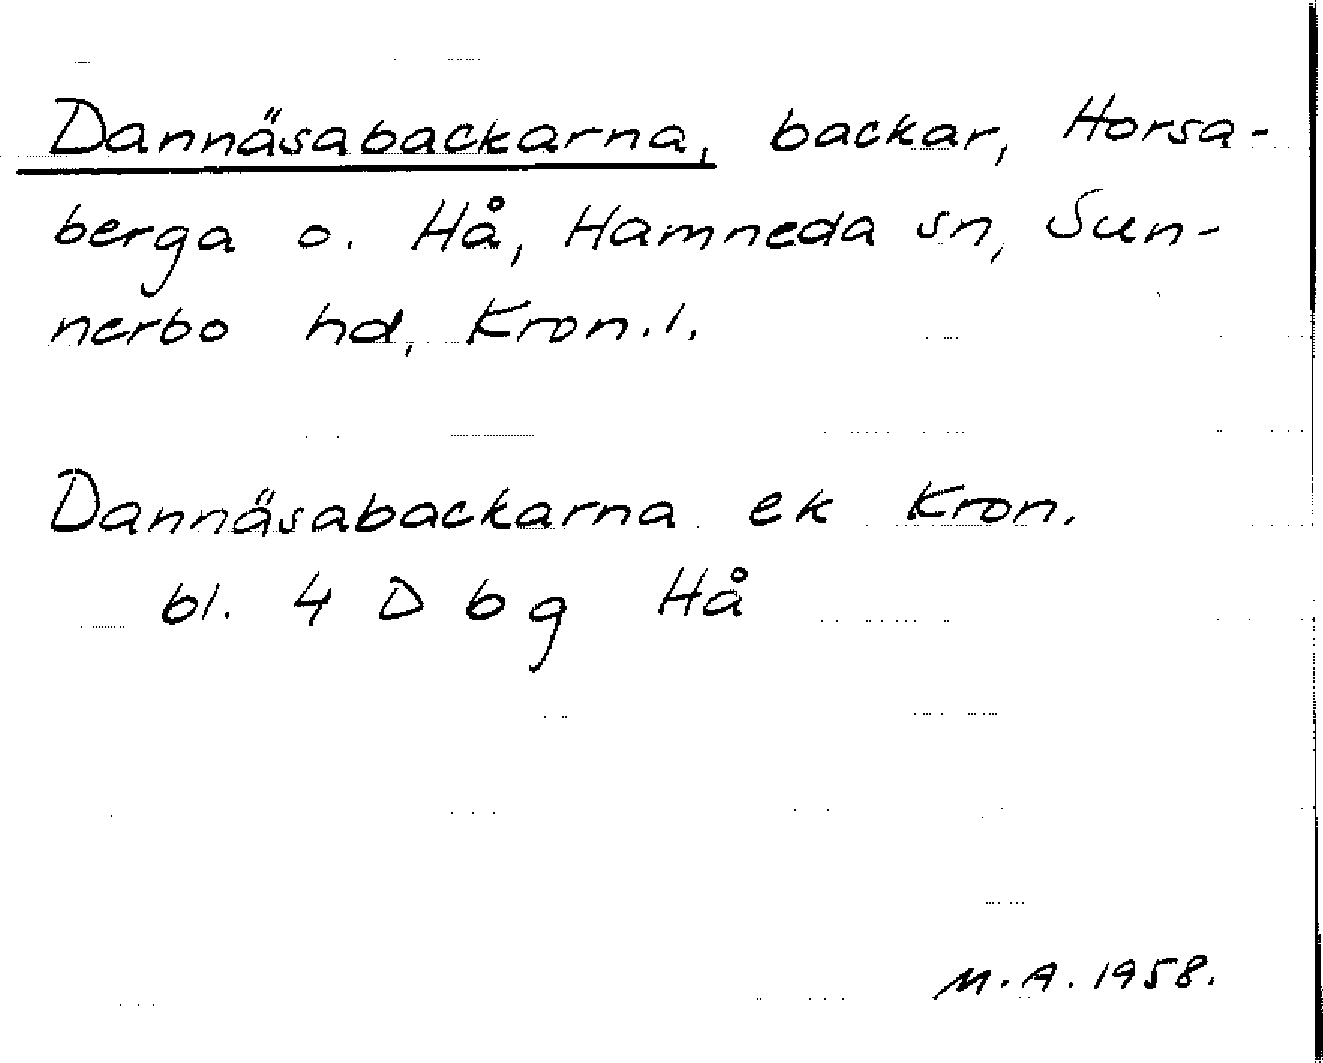 Dannäsabackarna, backar, Horsa-
berga o. Hå, Hamneda sn, Sun-
nerbo hd, Kron.l.
Dannäsabackarna ek Kron.
bl. 4 D b g Hå
M.A. 1958.